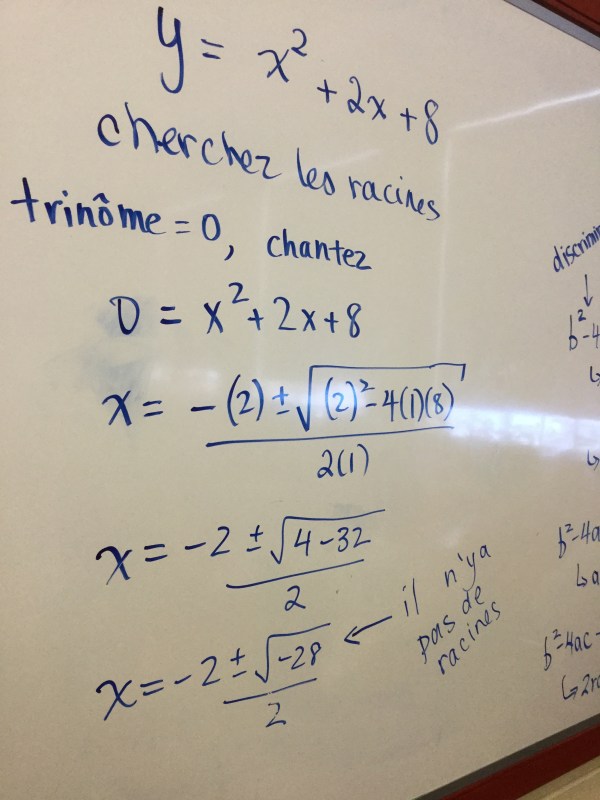 y = x² + 2x + 8
cherchez les racines
trinôme = 0, chantez
0 = x² + 2x + 8
x = -(2) ± √(2)² - 4(1)(8)
2(1)
x = -2 ± √4 - 32
2
x = -2 ± √-28
2
il n'ya
pas de
racines
discrimin
↓
b² - 4
↳
↳
b² - 4a
↳ a
b² - 4ac -
↳ 2r